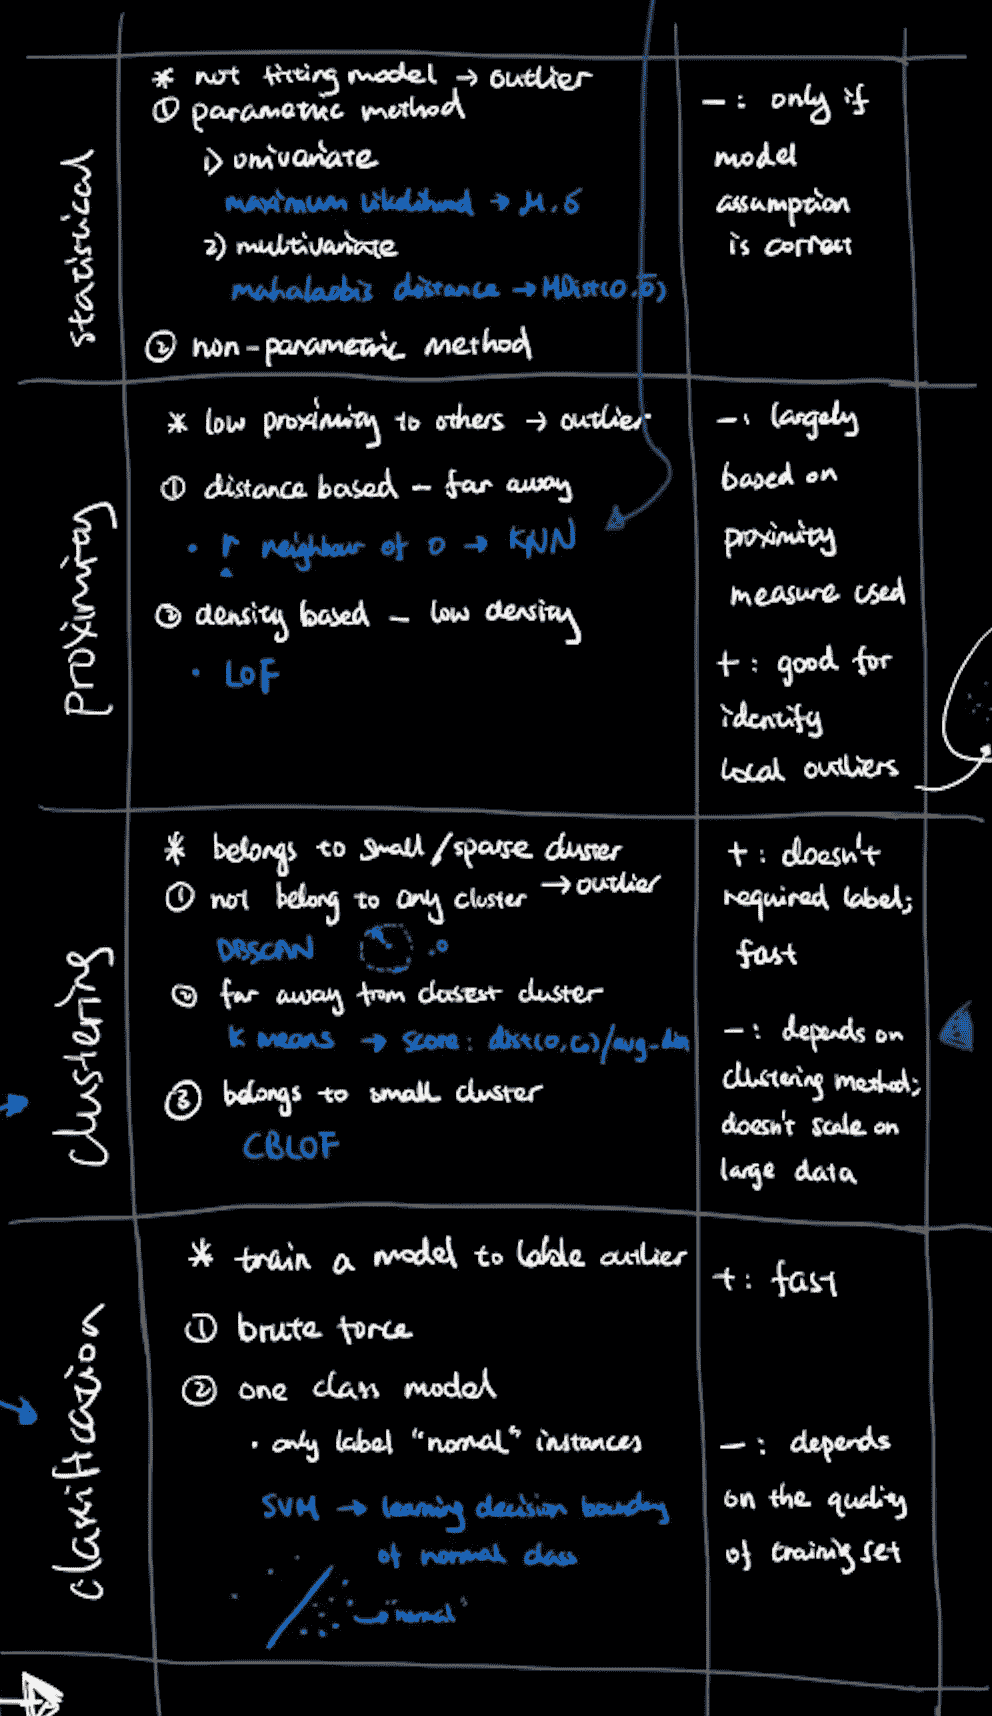 statistical
* not fitting model → outlier
① parametric method
1) univariate
maximum likelihood → μ, σ
2) multivariate
mahalaobis distance → MDist(o, ō)
② non-parametric method
- : only if
model
assumption
is correct
proximity
* low proximity to others → outlier
① distance based - far away
· r neighbour of o → KNN
② density based - low density
· LOF
- : largely
based on
proximity
measure used
+ : good for
identify
local outliers
clustering
* belongs to small/sparse cluster
→ outlier
① not belong to any cluster
DBSCAN
② far away from closest cluster
K means → score: dist(o,co)/avg-dis
③ belongs to small cluster
CBLOF
+ : doesn't
required label;
fast
- : depends on
clustering method;
doesn't scale on
large data
classification
* train a model to lable outlier
① brute force
② one class model
· only label "normal" instances
SVM → learning decision boundary
of normal class
→ "normal"
+ : fast
- : depends
on the quality
of training set